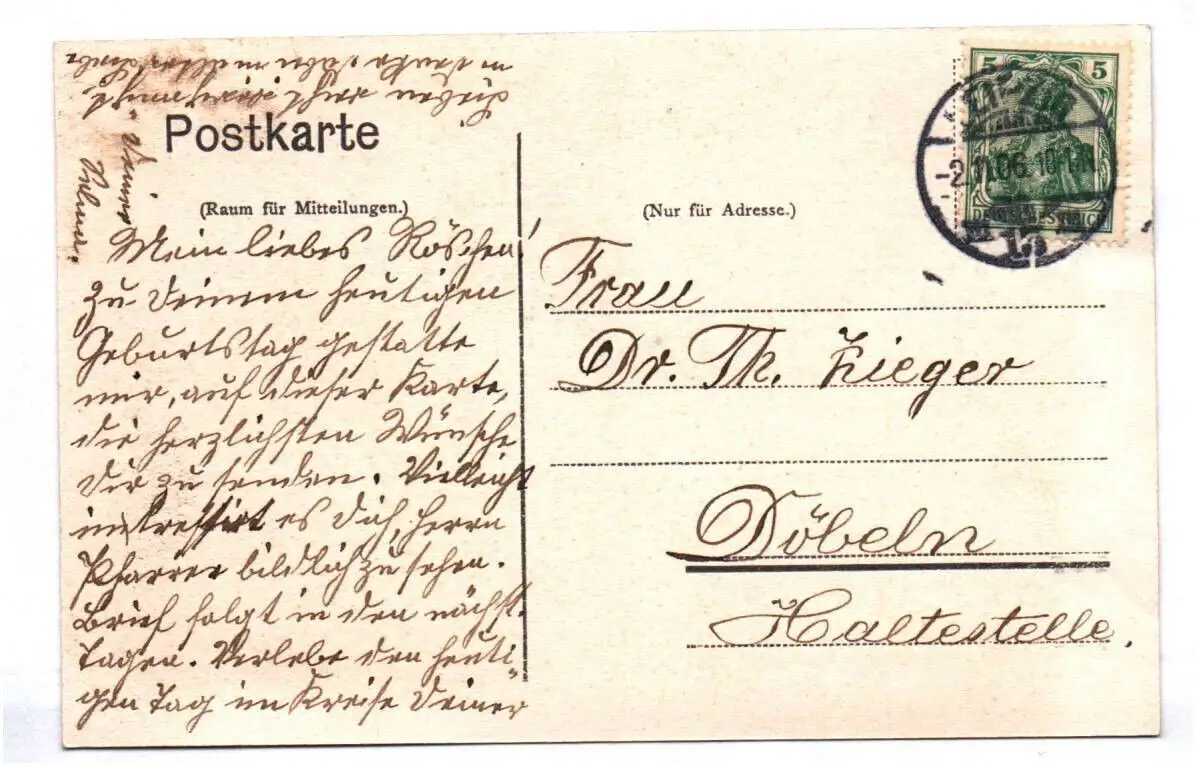 Postkarte
(Raum für Mitteilungen.)
Mein liebes Röschen!
Zu Deinem heutigen
Geburtstag gestatte
mir, auf dieser Karte,
die herzlichsten Wünsche
Dir zu senden. Vielleicht
intressirt es Dich, Herrn
Pfarrer bildlich zu sehen.
Brief folgt in den nächst.
Tagen. Verlebe den heuti-
gen Tag im Kreise Deiner
Lieben recht
in
Deine
(Nur für Adresse.)
Frau
Dr. Th. Zieger
Döbeln
Haltestelle.
5 5
DEUTSCHES REICH
LEIPZIG
2.11.06. 10-11
13